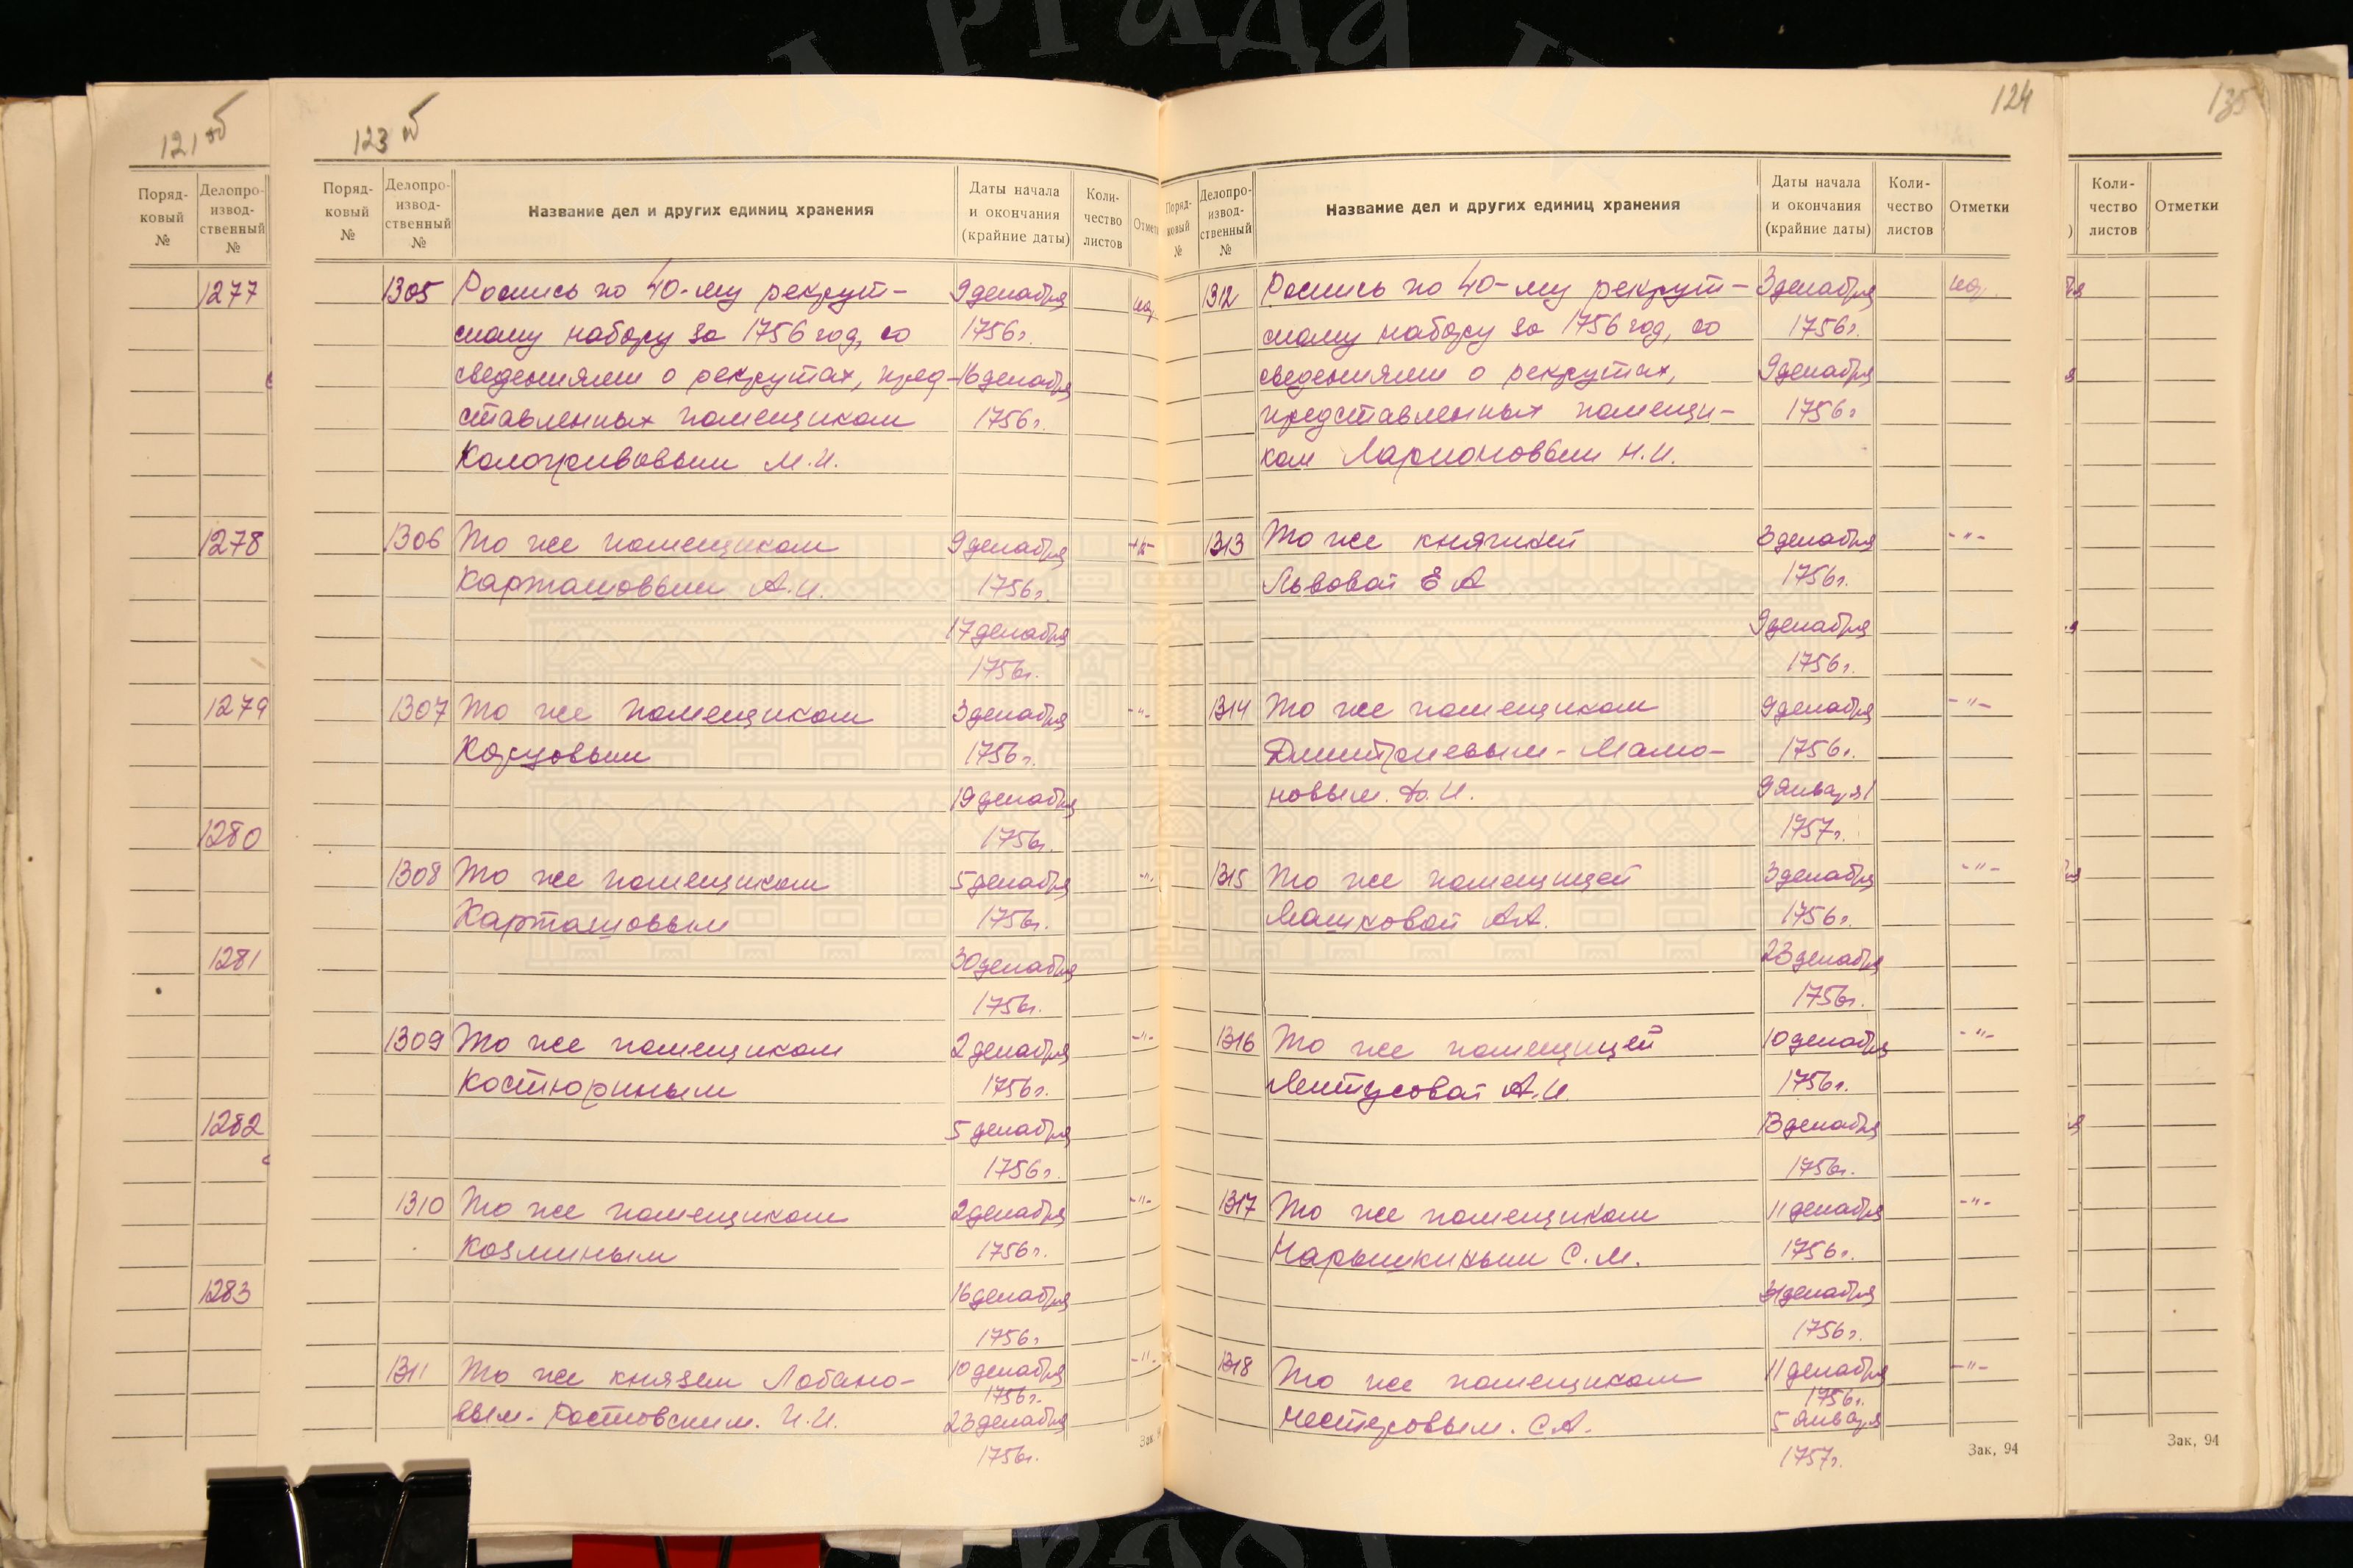 121 об
Поряд-
ковый
№
Делопро-
извод-
ственный
№
1277
1278
1279
1280
1281
1282
1283
123 об
Поряд-
ковый
№
Делопро-
извод-
ственный
№
Название дел и других единиц хранения
Даты начала
и окончания
(крайние даты)
Коли-
чество
листов
Отмет
1305 Роспись по 40-му рекрут- 9 декабря
скому набору за 1756 год, со 1756 г.
сведениями о рекрутах, пред- 16 декабря
ставленных помещиком 1756 г.
Кологривовым М.И.
1306 То же помещиком 9 декабря -"-
Карташовым А.И. 1756 г.
17 декабря
1756 г.
1307 То же помещиком 3 декабря -"-
1756 г.
19 декабря
1756 г.
1308 То же помещиком 5 декабря -"-
Карташовым 1756 г.
30 декабря
1756 г.
1309 То же помещиком 2 декабря -"-
Костюриным 1756 г.
5 декабря
1756 г.
1310 То же помещиком 2 декабря -"-
Козминым 1756 г.
16 декабря
1756 г.
1311 То же князем Лобано- 10 декабря -"-
1756 г.
вым-Ростовским И.И. 23 декабря
1756 г.
124
Поряд-
ковый
№
Делопро-
извод-
ственный
№
Название дел и других единиц хранения
Даты начала
и окончания
(крайние даты)
Коли-
чество
листов
Отметки
1312 Роспись по 40-му рекрут- 3 декабря
скому набору за 1756 год, со 1756 г.
сведениями о рекрутах, 9 декабря
представленных помещи- 1756 г.
ком Ларионовым Н.И.
1313 То же княжной 3 декабря -"-
Львовой Е А 1756 г.
9 декабря
1756 г.
1314 То же помещиком 9 декабря -"-
Дмитриевым-Мамо- 1756 г.
новым. Ф.И. 9 января
1757 г.
1315 То же помещицей 3 декабря -"-
Машковой А.А. 1756 г.
23 декабря
1756 г.
1316 То же помещицей 10 декабря -"-
Митусовой А.И. 1756 г.
13 декабря
1756 г.
1317 То же помещиком 11 декабря -"-
Нарышкиным С.М. 1756 г.
31 декабря
1756 г.
1318 То же помещиком 11 декабря -"-
1756 г.
Нестеровым. С.А. 5 января
1757 г.
Зак. 94
135
Коли-
чество
листов
Отметки
Зак. 94